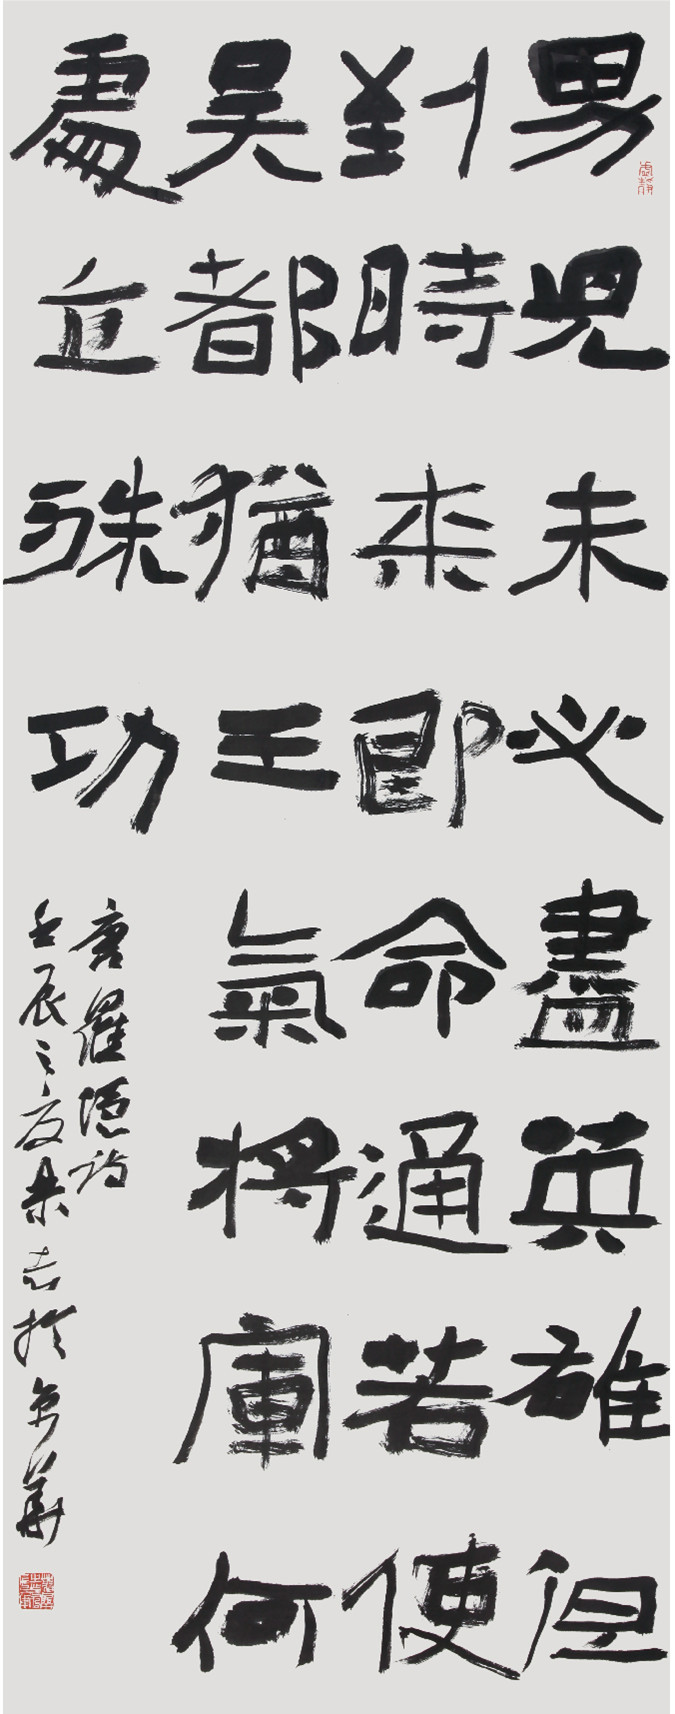 男兒未必盡英雄但
到時來即命通若使
吳都猶王氣將軍何
處立殊功
唐羅隱詩
壬辰之夏志於京華
虛靜